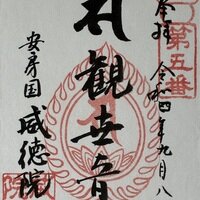 第五番
奉拝 令和四年九月八
観世音
安房国 威徳院